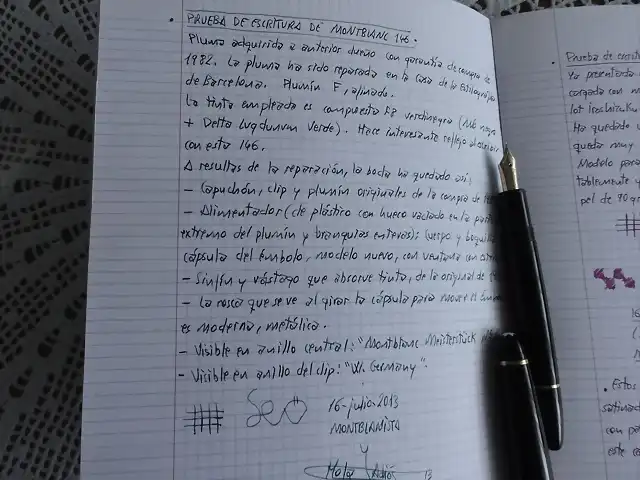 • PRUEBA DE ESCRITURA DE MONTBLANC 146.
Pluma adquirida a anterior dueño con garantía de compra de
1982. La pluma ha sido reparada en la Casa de la Estilográfica
de Barcelona. Plumín F, afinado.
La tinta empleada es compuesta verdinegra
+ Delta Lugdunum Verde). Hace interesante reflejo al escribir
con esta 146.
A resultas de la reparación, la boda ha quedado así:
- Capuchón, clip y plumín originales de la compra de
- Alimentador (de plástico con hueco vaciado en la parte
extremo del plumín y branquias enteras); cuerpo y boquilla
cápsula del émbolo, modelo nuevo, con ventana con
- Sinfín y vástago que absorve tinta, de la original de
- La rosca que se ve al girar la cápsula para mover el
es moderna, metálica.
- Visible en anillo central: "Montblanc Meisterstück
- Visible en anillo del clip: "W. Germany".
16-julio-2013
MONTBLANITA
y
13
• Prueba de
Ya presentada
cargada con
lot
Ha quedado
quedar muy
Modelo para
tablemente
pel de 90 gr
16
• Estos
satinad
con pa
este